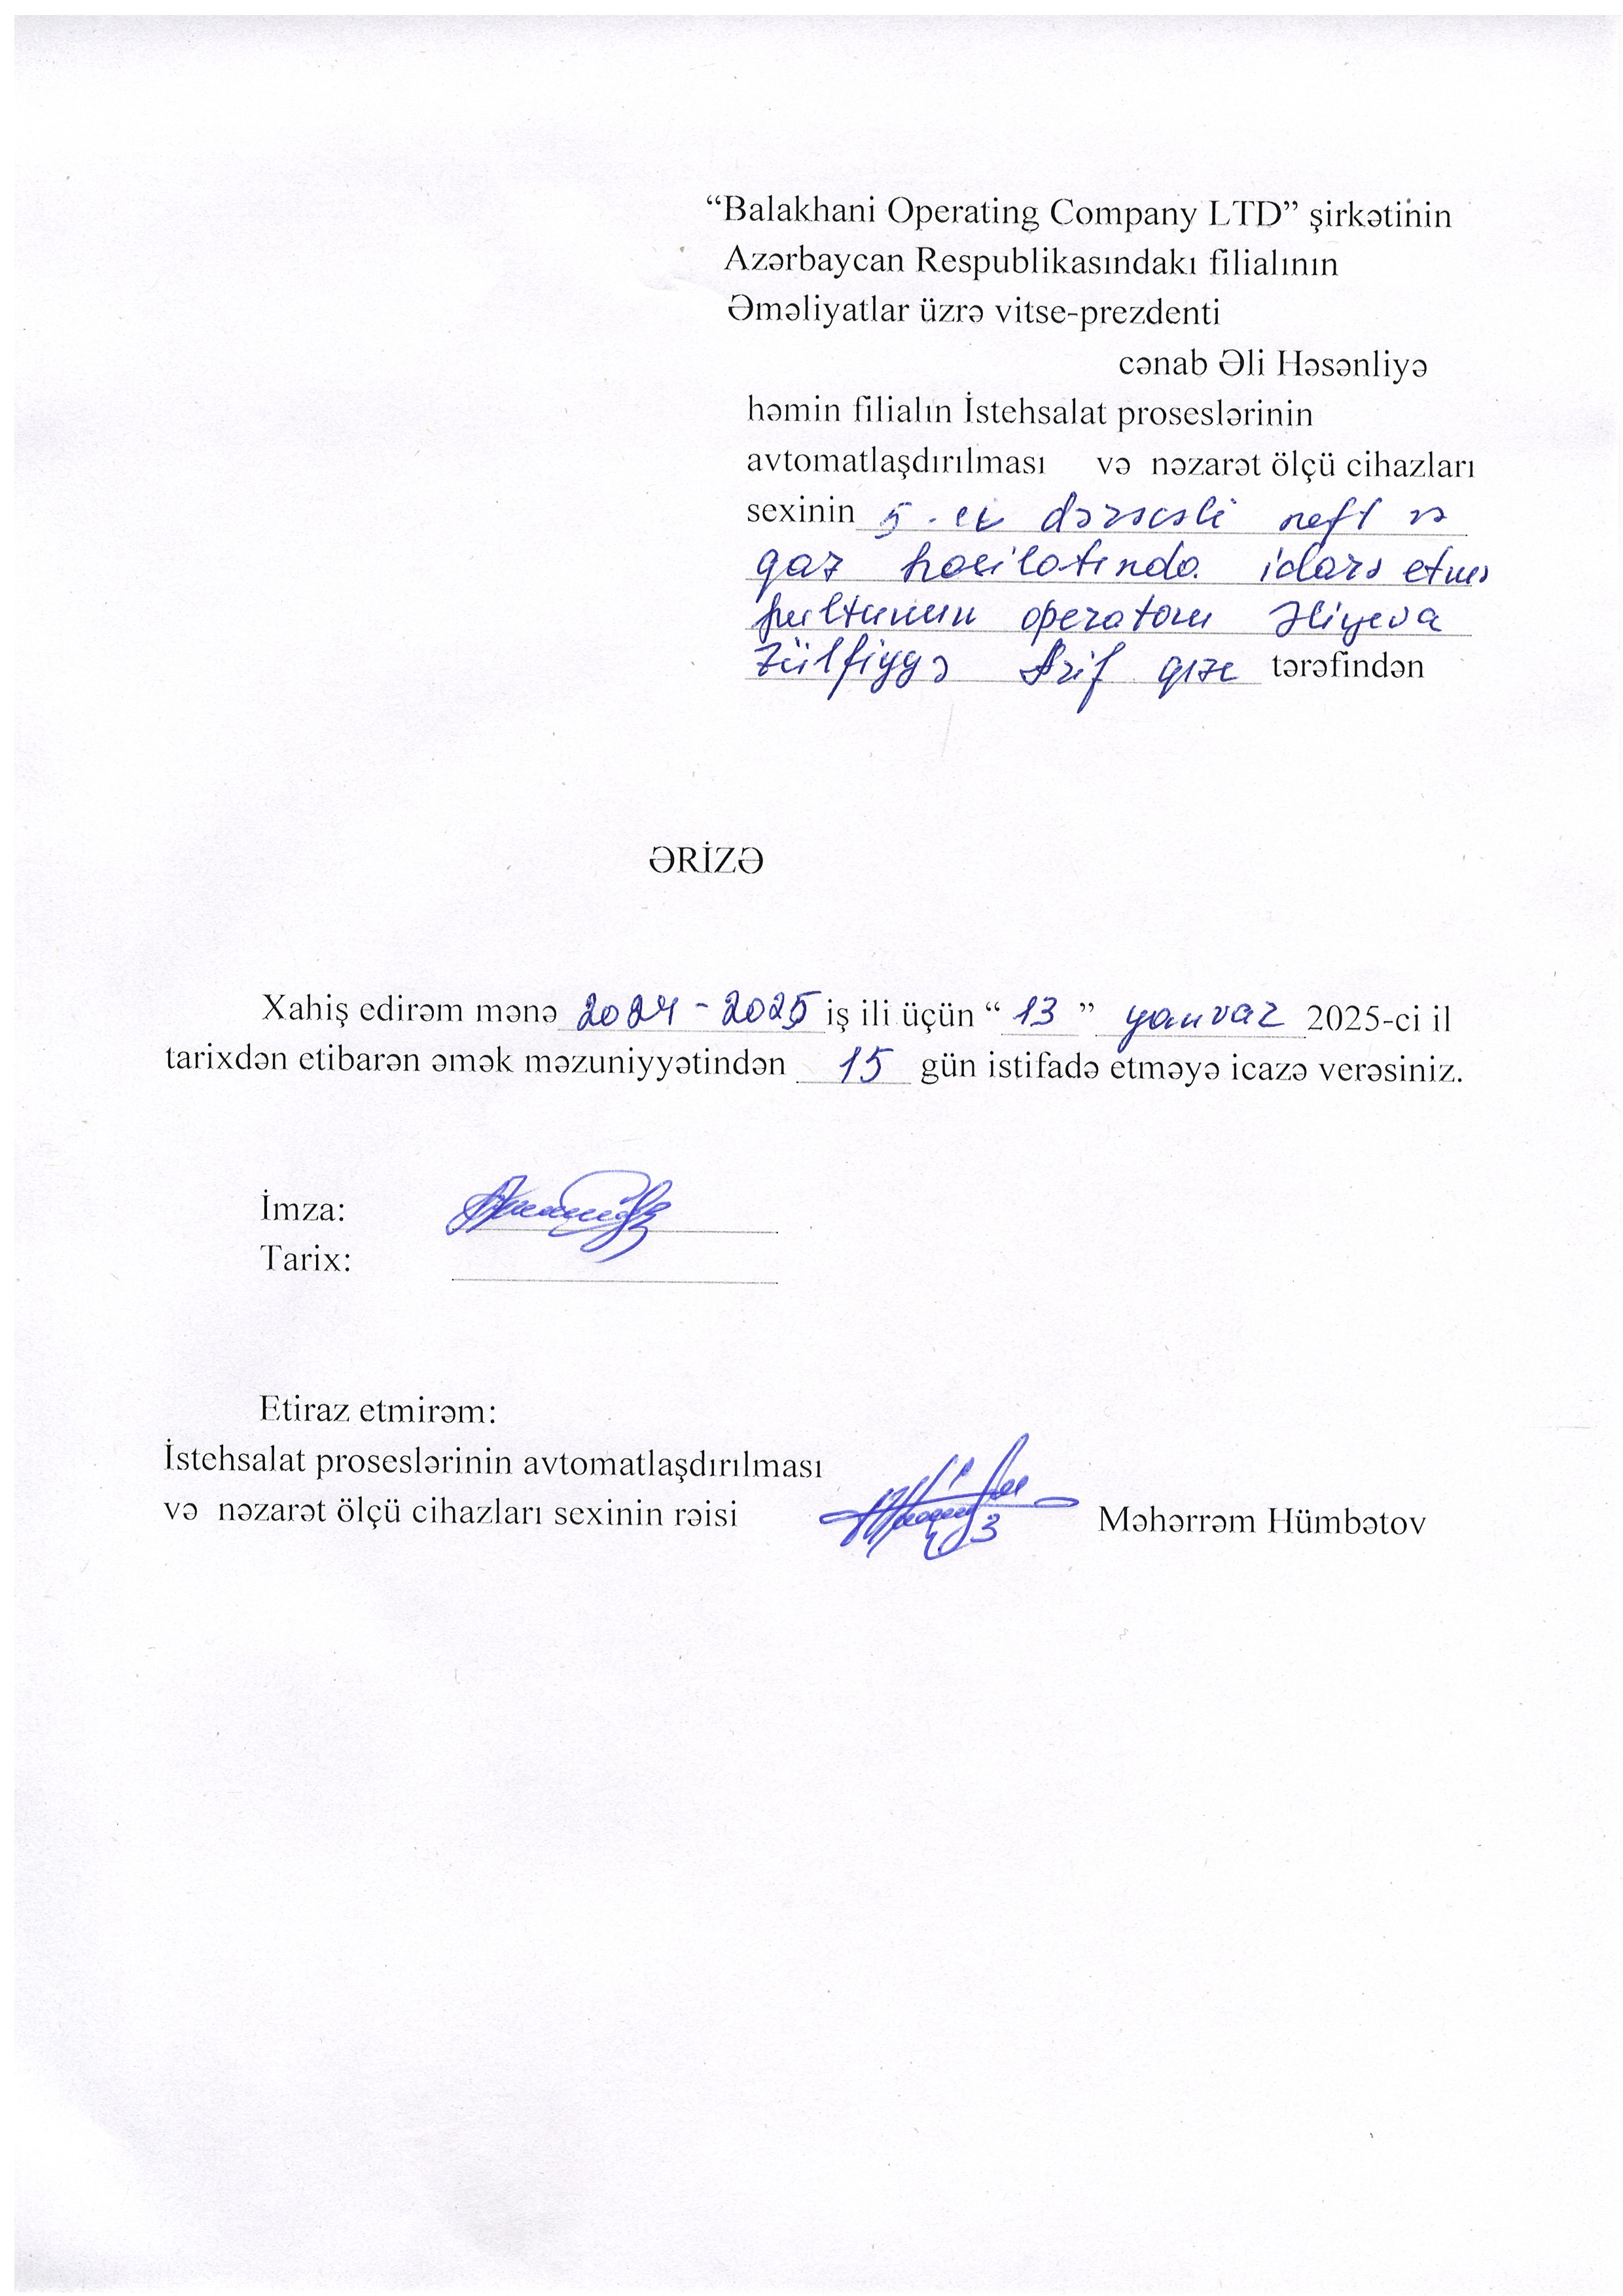 “Balakhani Operating Company LTD” şirkətinin
Azərbaycan Respublikasındakı filialının
Əməliyatlar üzrə vitse-prezdenti
cənab Əli Həsənliyə
həmin filialın İstehsalat proseslərinin
avtomatlaşdırılması və nəzarət ölçü cihazları
sexinin 5-ci dərəcəli neft və
qaz hasilatında idarə etmə
pultunun operatoru Əliyeva
Zülfiyyə Arif qızı tərəfindən
ƏRİZƏ
Xahiş edirəm mənə 2024-2025 iş ili üçün “13” yanvar 2025-ci il
tarixdən etibarən əmək məzuniyyətindən 15 gün istifadə etməyə icazə verəsiniz.
İmza:
Tarix:
Etiraz etmirəm:
İstehsalat proseslərinin avtomatlaşdırılması
və nəzarət ölçü cihazları sexinin rəisi Məhərrəm Hümbətov